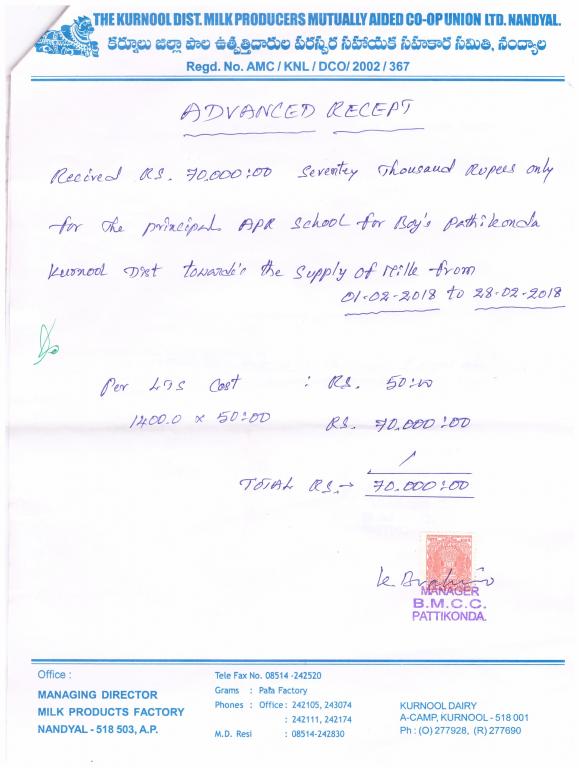 THE KURNOOL DIST. MILK PRODUCERS MUTUALLY AIDED CO-OP UNION LTD. NANDYAL.
కర్నూలు జిల్లా పాల ఉత్పత్తిదారుల పరస్పర సహాయక సహకార సమితి, నంద్యాల
Regd. No. AMC / KNL / DCO/ 2002 / 367
ADVANCED RECEPT
Recived RS. 70,000:00 Seventey Thousand Rupees only
for the principal APR School for Boy's Pathikonda
Kurnool Dist towards's the Supply of Milk from
01-02-2018 to 28-02-2018
Per LTS Cost : RS. 50:00
1400.0 x 50:00 RS. 70,000:00
TOTAL RS.→ 70,000:00
MANAGER
B.M.C.C.
PATTIKONDA.
Office :
MANAGING DIRECTOR
MILK PRODUCTS FACTORY
NANDYAL - 518 503, A.P.
Tele Fax No. 08514 -242520
Grams : Pala Factory
Phones : Office : 242105, 243074
: 242111, 242174
M.D. Resi : 08514-242830
KURNOOL DAIRY
A-CAMP, KURNOOL - 518 001
Ph : (O) 277928, (R) 277690